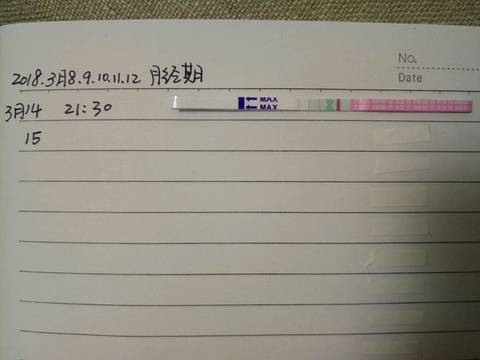 No.
2018.3月8.9.10.11.12 月经期
Date
3月14 21:30
MAX
MAX
15